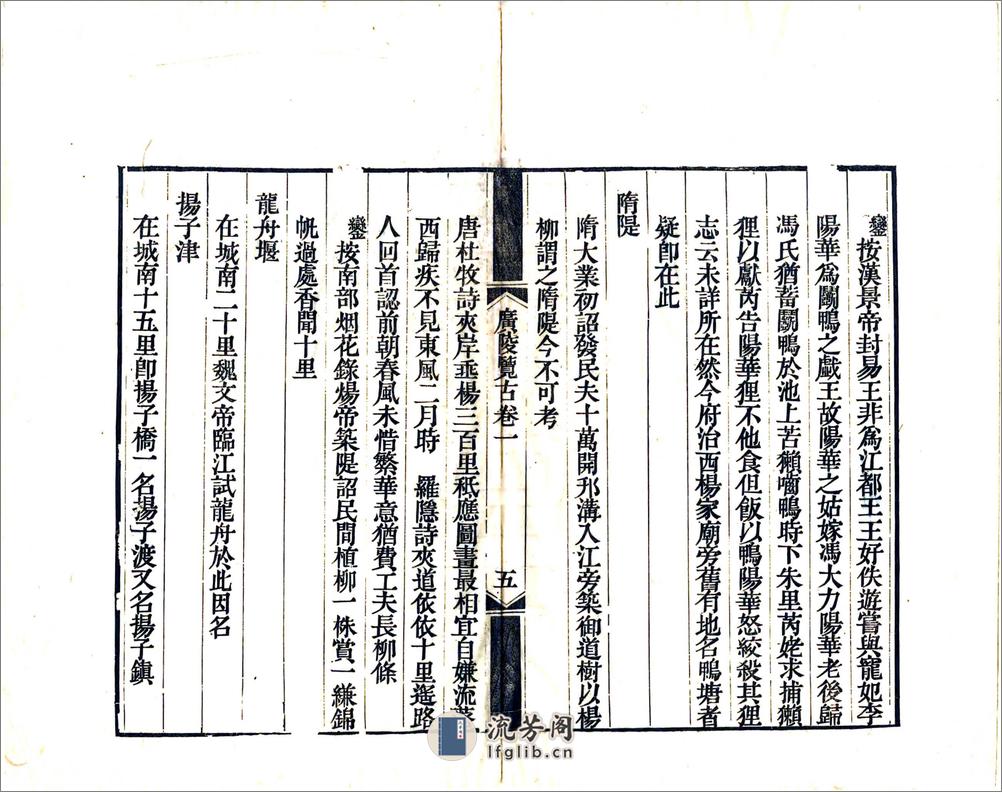 鑾按漢景帝封易王非爲江都王王好佚遊嘗與寵妃李
陽華爲鬭鴨之戲王故陽華之姑嫁馮大力陽華老後歸
馮氏猶蓄鬭鴨於池上苦獺嚙鴨時下朱里芮姥求捕獺
狸以獻芮告陽華狸不他食但飯以鴨陽華怒絞殺其狸
志云未詳所在然今府治西楊家廟旁舊有地名鴨塘者
疑卽在此
隋隄
隋大業初詔發民夫十萬開邗溝入江旁築御道樹以楊
柳謂之隋隄今不可考
廣陵覽古卷一
五
唐杜牧詩夾岸垂楊三百里秪應圖畫最相宜自嫌流落
西歸疾不見東風二月時 羅隱詩夾道依依十里遙路
人回首認前朝春風未惜繁華意猶費工夫長柳條
鑾按南部烟花錄煬帝築隄詔民間植柳一株賞一縑錦
帆過處香聞十里
龍舟堰
在城南二十里魏文帝臨江試龍舟於此因名
揚子津
在城南十五里卽揚子橋一名揚子渡又名揚子鎭
流芳阁
lfglib.cn